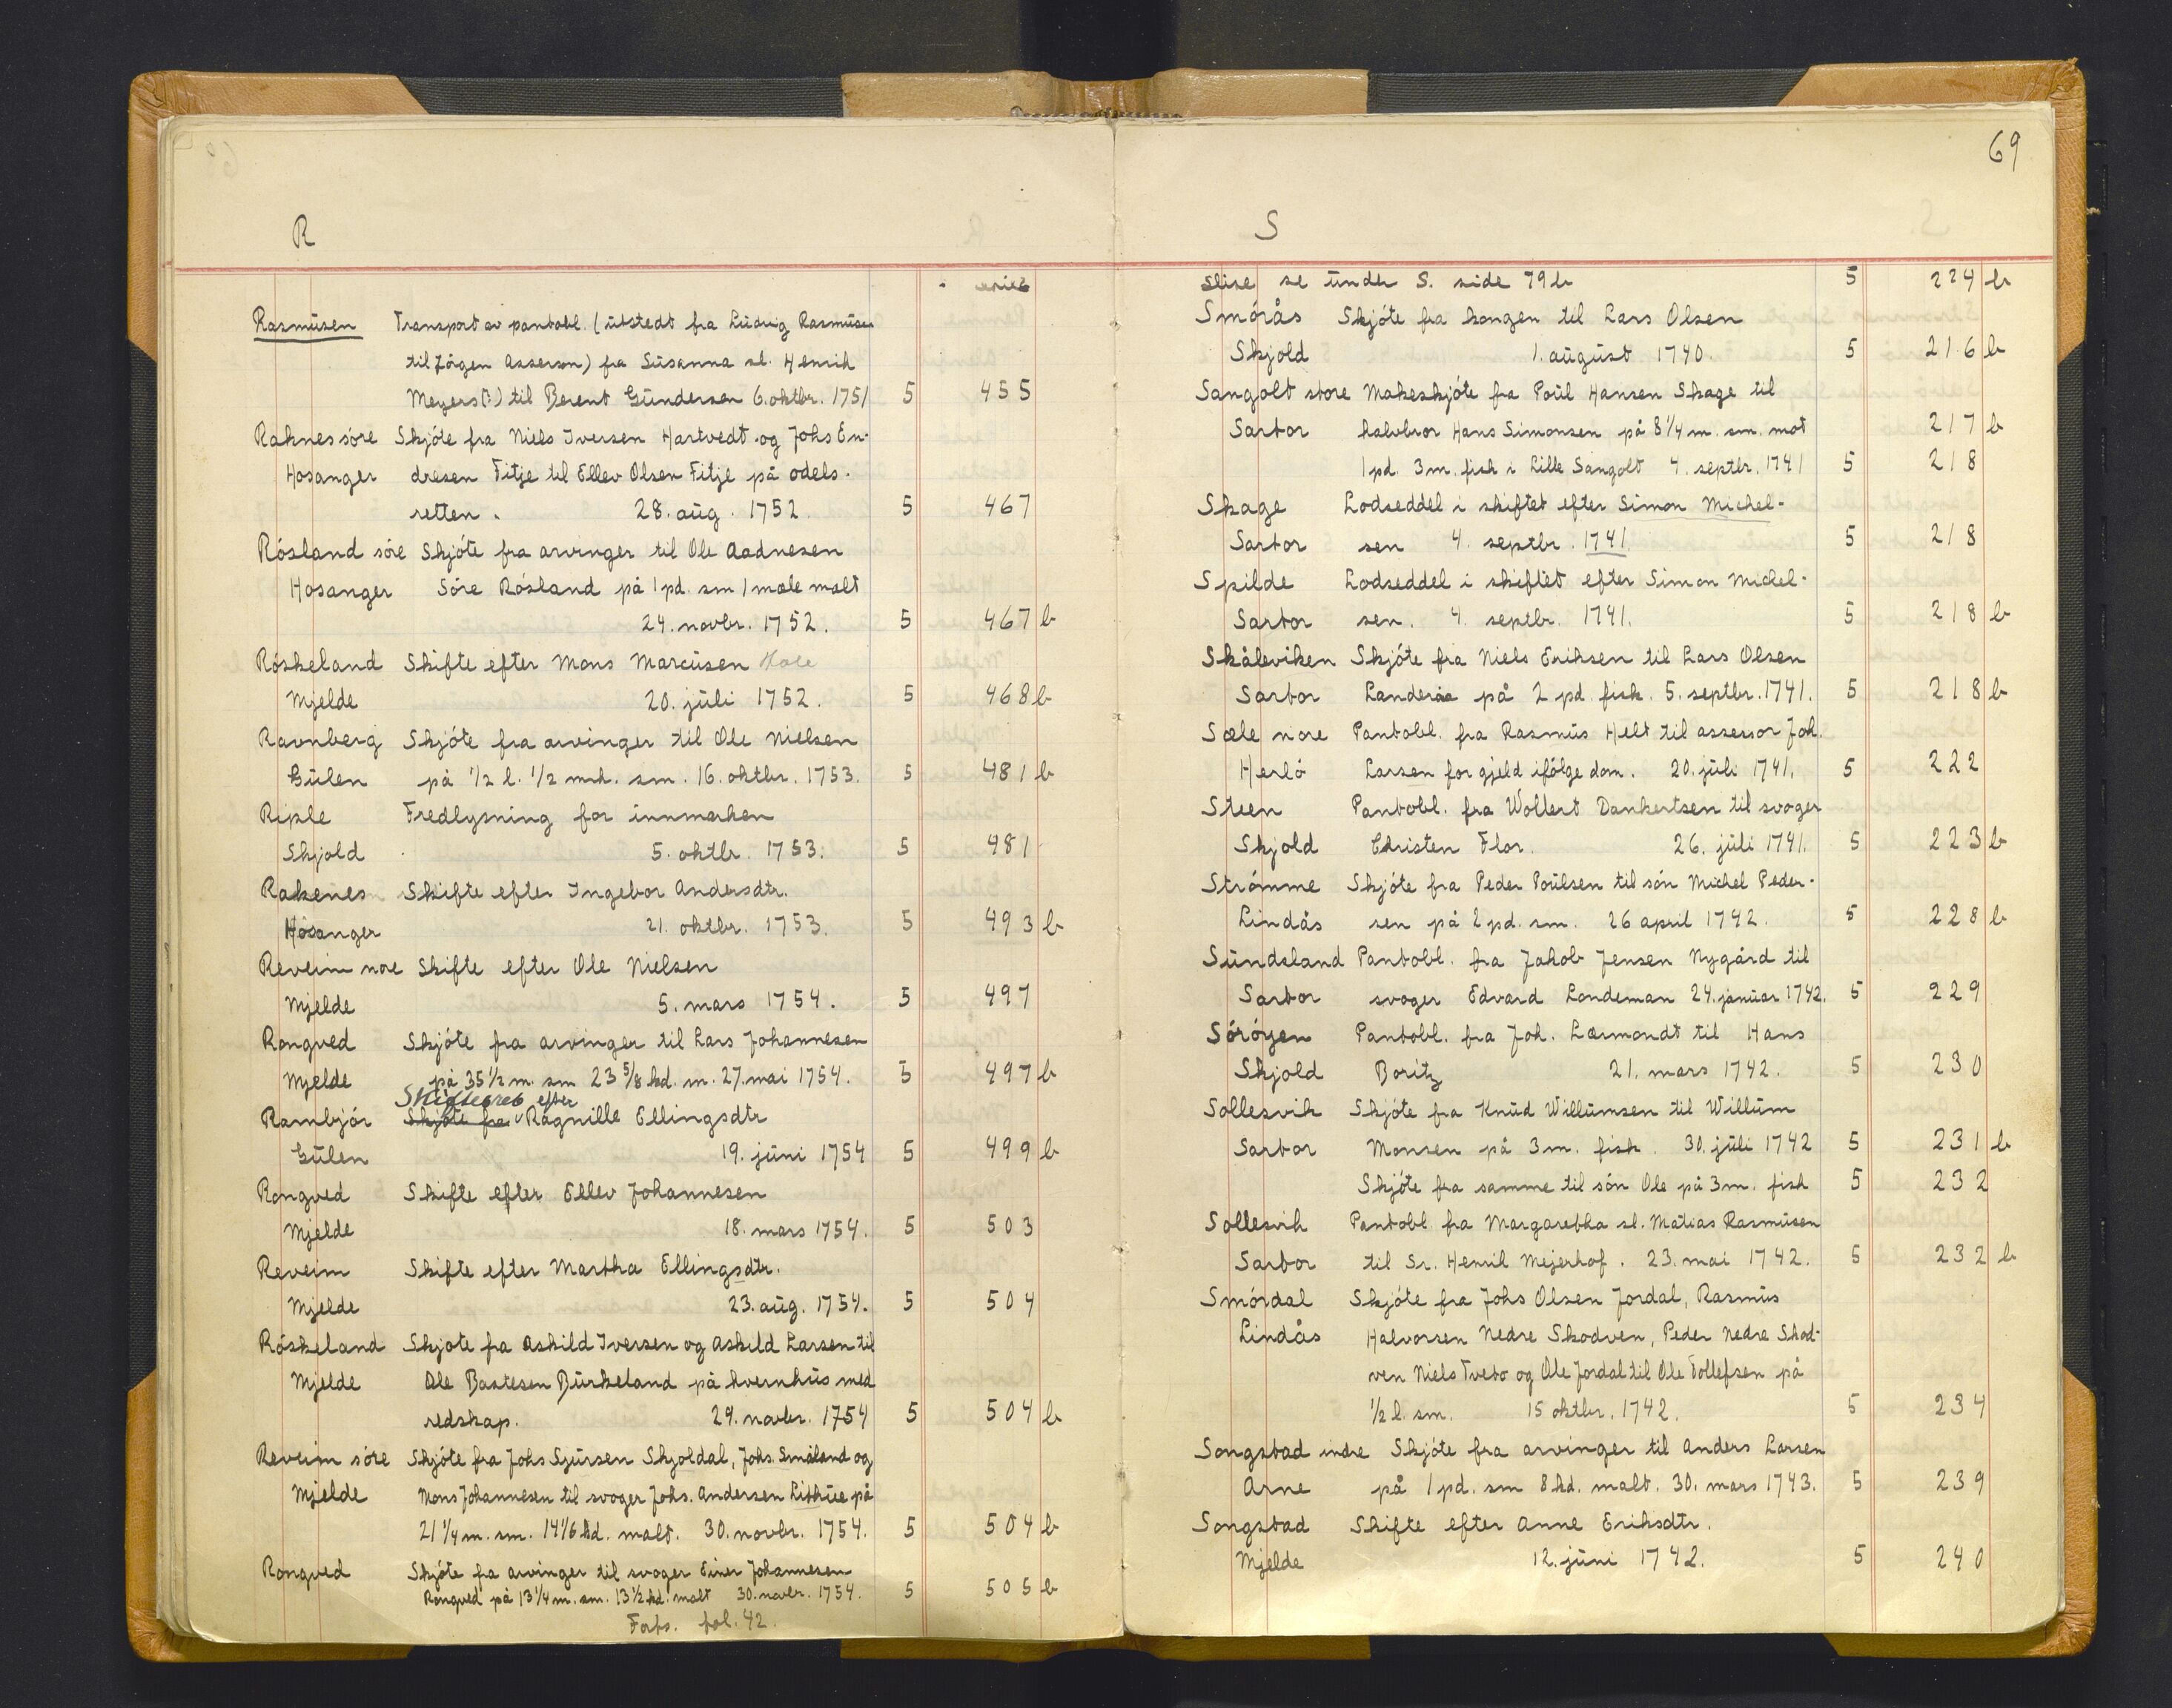 R
Rasmusen Transport av pantobl. (utstedt fra Ludvig Rasmusen
til Jörgen Asserson) fra Susanna sl. Henrik
Meyers(?) til Berent Gundersen 6. oktbr. 1751 5 455
Raknes söre Skjöte fra Niels Iversen Hartvedt og Johs En-
Hosanger dresen Fitje til Ellev Olsen Fitje på odels-
retten. 28. aug. 1752. 5 467
Rösland söre Skjöte fra arvinger til Ole Aadnesen
Hosanger Söre Rösland på 1 pd. sm 1 mæle malt
24. novbr. 1752. 5 467 b
Röskeland Skifte efter Mons Marcusen Hole
Mjelde 20. juli 1752. 5 468 b
Ravnberg Skjöte fra arvinger til Ole Nielsen
Gulen på ½ l. ½ mrk. sm. 16. oktbr. 1753. 5 481 b
Riple Fredlysning for innmarken
Skjold 5. oktbr. 1753. 5 481
Rakenes Skifte efter Ingebor Andersdtr.
Hosanger 21. oktbr. 1753. 5 493 b
Reveim nore Skifte efter Ole Nielsen
Mjelde 5. mars 1754. 5 497
Rongved Skjöte fra arvinger til Lars Johannesen
Mjelde på 35 ½ m. sm 23 5/8 kd. m. 27. mai 1754. 5 497 b
Skiftebrev efter
Rambjör Skjöte fra Ragnille Ellingsdtr
Gulen 19. juni 1754 5 499 b
Rongved Skifte efter Ellev Johannesen
Mjelde 18. mars 1754. 5 503
Reveim Skifte efter Martha Ellingsdtr.
Mjelde 23. aug. 1754. 5 504
Röskeland Skjöte fra Askild Iversen og Askild Larsen til
Mjelde Ole Bastesen Burkeland på kvernhus med
redskap. 29. novbr. 1754 5 504 b
Reveim söre Skjöte fra Johs Sjursen Skjoldal, Johs. Småland og
Mjelde Mons Johannesen til svoger Johs. Andersen Lithue på
21 ¼ m. sm. 14 1/6 kd. malt. 30. novbr. 1754. 5 504 b
Rongved Skjöte fra arvinger til svoger Einer Johannesen
Rongved på 13 ¼ m. sm. 13 ½ kd. malt 30. novbr. 1754. 5 505 b
Forts. fol. 42.
69
S
Slire se under S. side 79 b 5 224 b
Smörås Skjöte fra kongen til Lars Olsen
Skjold 1. august 1740. 5 216 b
Sangolt store Makeskjöte fra Poul Hansen Skage til
Sartor halvbror Hans Simonsen på 8 ¼ m. sm. mot 217 b
1 pd. 3 m. fisk i Lille Sangolt 4. septbr. 1741 5 218
Skage Lodseddel i skiftet efter Simon Michel-
Sartor sen 4. septbr. 1741. 5 218
Spilde Lodseddel i skiftet efter Simon Michel-
Sartor sen. 4. septbr. 1741. 5 218 b
Skåleviken Skjöte fra Niels Eriksen til Lars Olsen
Sartor på 2 pd. fisk. 5. septbr. 1741. 5 218 b
Sæle nore Pantobl. fra Rasmus Helt til assessor Joh.
Herlö Larsen for gjeld ifölge dom. 20. juli 1741. 5 222
Steen Pantobl. fra Wollert Dankertsen til svoger
Skjold Christen Flor. 26. juli 1741. 5 223 b
Strömme Skjöte fra Peder Poulsen til sön Michel Peder-
Lindås sen på 2 pd. sm. 26 april 1742. 5 228 b
Sundsland Pantobl. fra Jakob Jensen Nygård til
Sartor svoger Edvard Londeman 24. januar 1742. 5 229
Söröyen Pantobl. fra Joh. Lærmondt til Hans
Skjold Boritz 21. mars 1742. 5 230
Sollesvik Skjöte fra Knud Willumsen til Willum
Sartor Monsen på 3 m. fisk. 30. juli 1742 5 231 b
Skjöte fra samme til sön Ole på 3 m. fisk 5 232
Sollesvik Pantobl. fra Margaretha sl. Matias Rasmusen
Sartor til Sr. Henrik Mejerhof. 23. mai 1742. 5 232 b
Smördal Skjöte fra Johs Olsen Jordal, Rasmus
Lindås Halvorsen Nedre Skodven, Peder Nedre Skod-
ven Niels Tveto og Ole Jordal til Ole Tollefsen på
½ l. sm. 15 oktbr. 1742. 5 234
Songstad indre Skjöte fra arvinger til Anders Larsen
Arne på 1 pd. sm 8 kd. malt. 30. mars 1743. 5 239
Songstad Skifte efter Anne Eriksdtr.
Mjelde 12. juni 1742. 5 240